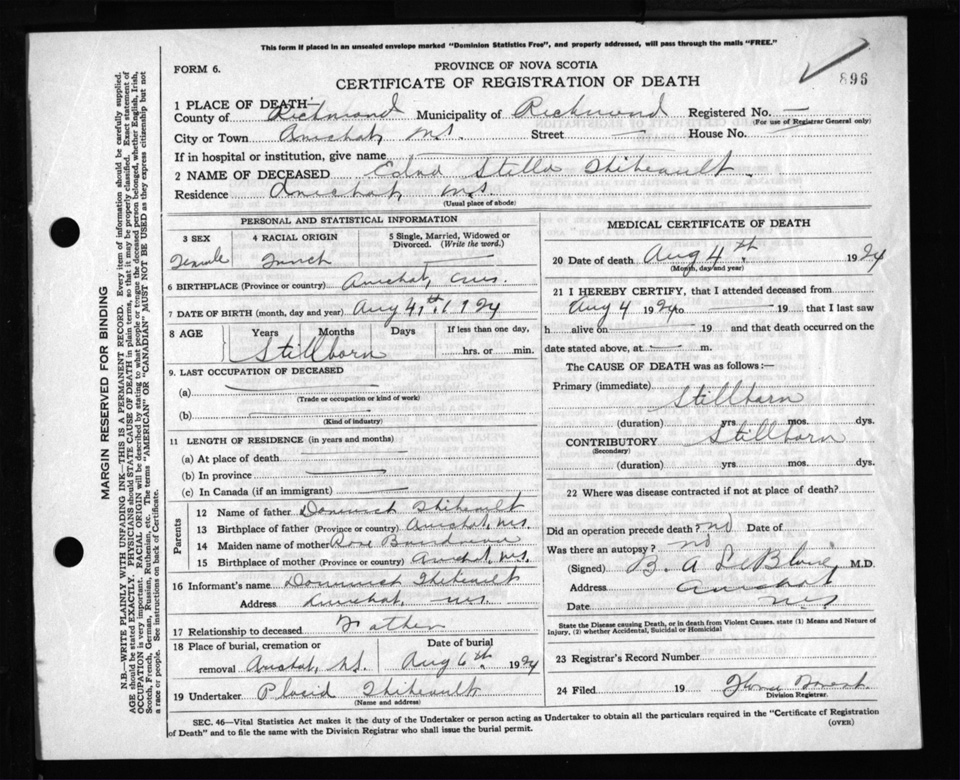 This form if placed in an unsealed envelope marked "Dominion Statistics Free", and properly addressed, will pass through the mails "FREE."
FORM 6.
PROVINCE OF NOVA SCOTIA
896
CERTIFICATE OF REGISTRATION OF DEATH
1 PLACE OF DEATH—
County of Richmond Municipality of Richmond Registered No. —
(For use of Registrar General only)
City or Town Arichat, N.S. Street — House No. —
If in hospital or institution, give name
2 NAME OF DECEASED Edna Stella Thibeault
Residence Arichat, N.S.
(Usual place of abode)
PERSONAL AND STATISTICAL INFORMATION
3 SEX 4 RACIAL ORIGIN 5 Single, Married, Widowed or Divorced. (Write the word.)
Female French —
6 BIRTHPLACE (Province or country) Arichat, N.S.
7 DATE OF BIRTH (month, day and year) Aug 4th, 1924
8 AGE Years Months Days If less than one day,
Stillborn hrs. or min.
9. LAST OCCUPATION OF DECEASED
(a) —
(Trade or occupation or kind of work)
(b) —
(Kind of industry)
11 LENGTH OF RESIDENCE (in years and months)
(a) At place of death —
(b) In province —
(c) In Canada (if an immigrant) —
Parents
12 Name of father Dominick Thibeault
13 Birthplace of father (Province or country) Arichat, N.S.
14 Maiden name of mother Rose
15 Birthplace of mother (Province or country) Arichat, N.S.
16 Informant's name Dominick Thibeault
Address Arichat, N.S.
17 Relationship to deceased Father
18 Place of burial, cremation or Date of burial
removal Arichat, N.S. Aug 6th. 1924
19 Undertaker Placid Thibeault
(Name and address)
MEDICAL CERTIFICATE OF DEATH
20 Date of death Aug 4th. 1924
(Month, day and year)
21 I HEREBY CERTIFY, that I attended deceased from
Aug 4 1924 to — 19 that I last saw
h alive on — 19 and that death occurred on the
date stated above, at — m.
The CAUSE OF DEATH was as follows:—
Primary (immediate) Stillborn
(duration) yrs. mos. dys.
CONTRIBUTORY Stillborn
(Secondary)
(duration) yrs. mos. dys.
22 Where was disease contracted if not at place of death?
Did an operation precede death? no Date of
Was there an autopsy? no
(Signed) B. A. LeBlanc, M.D.
Address Arichat
Date N.S.
State the Disease causing Death, or in death from Violent Causes, state (1) Means and Nature of
Injury, (2) whether Accidental, Suicidal or Homicidal
23 Registrar's Record Number
24 Filed 19
Division Registrar.
SEC. 46—Vital Statistics Act makes it the duty of the Undertaker or person acting as Undertaker to obtain all the particulars required in the "Certificate of Registration
of Death" and to file the same with the Division Registrar who shall issue the burial permit.
(OVER)
MARGIN RESERVED FOR BINDING
N.B.—WRITE PLAINLY WITH UNFADING INK—THIS IS A PERMANENT RECORD. Every item of information should be carefully supplied.
AGE should be stated EXACTLY. PHYSICIANS should STATE CAUSE OF DEATH in plain terms, so that it may be properly classified. Exact statement of
OCCUPATION is very important. RACIAL ORIGIN will be described by stating to what people or tongue the deceased person belonged, whether English, Irish,
Scotch, French, German, Russian, Ruthenian, etc. The terms "AMERICAN" OR "CANADIAN" MUST NOT BE USED as they express citizenship but not
a race or people. See instructions on back of Certificate.